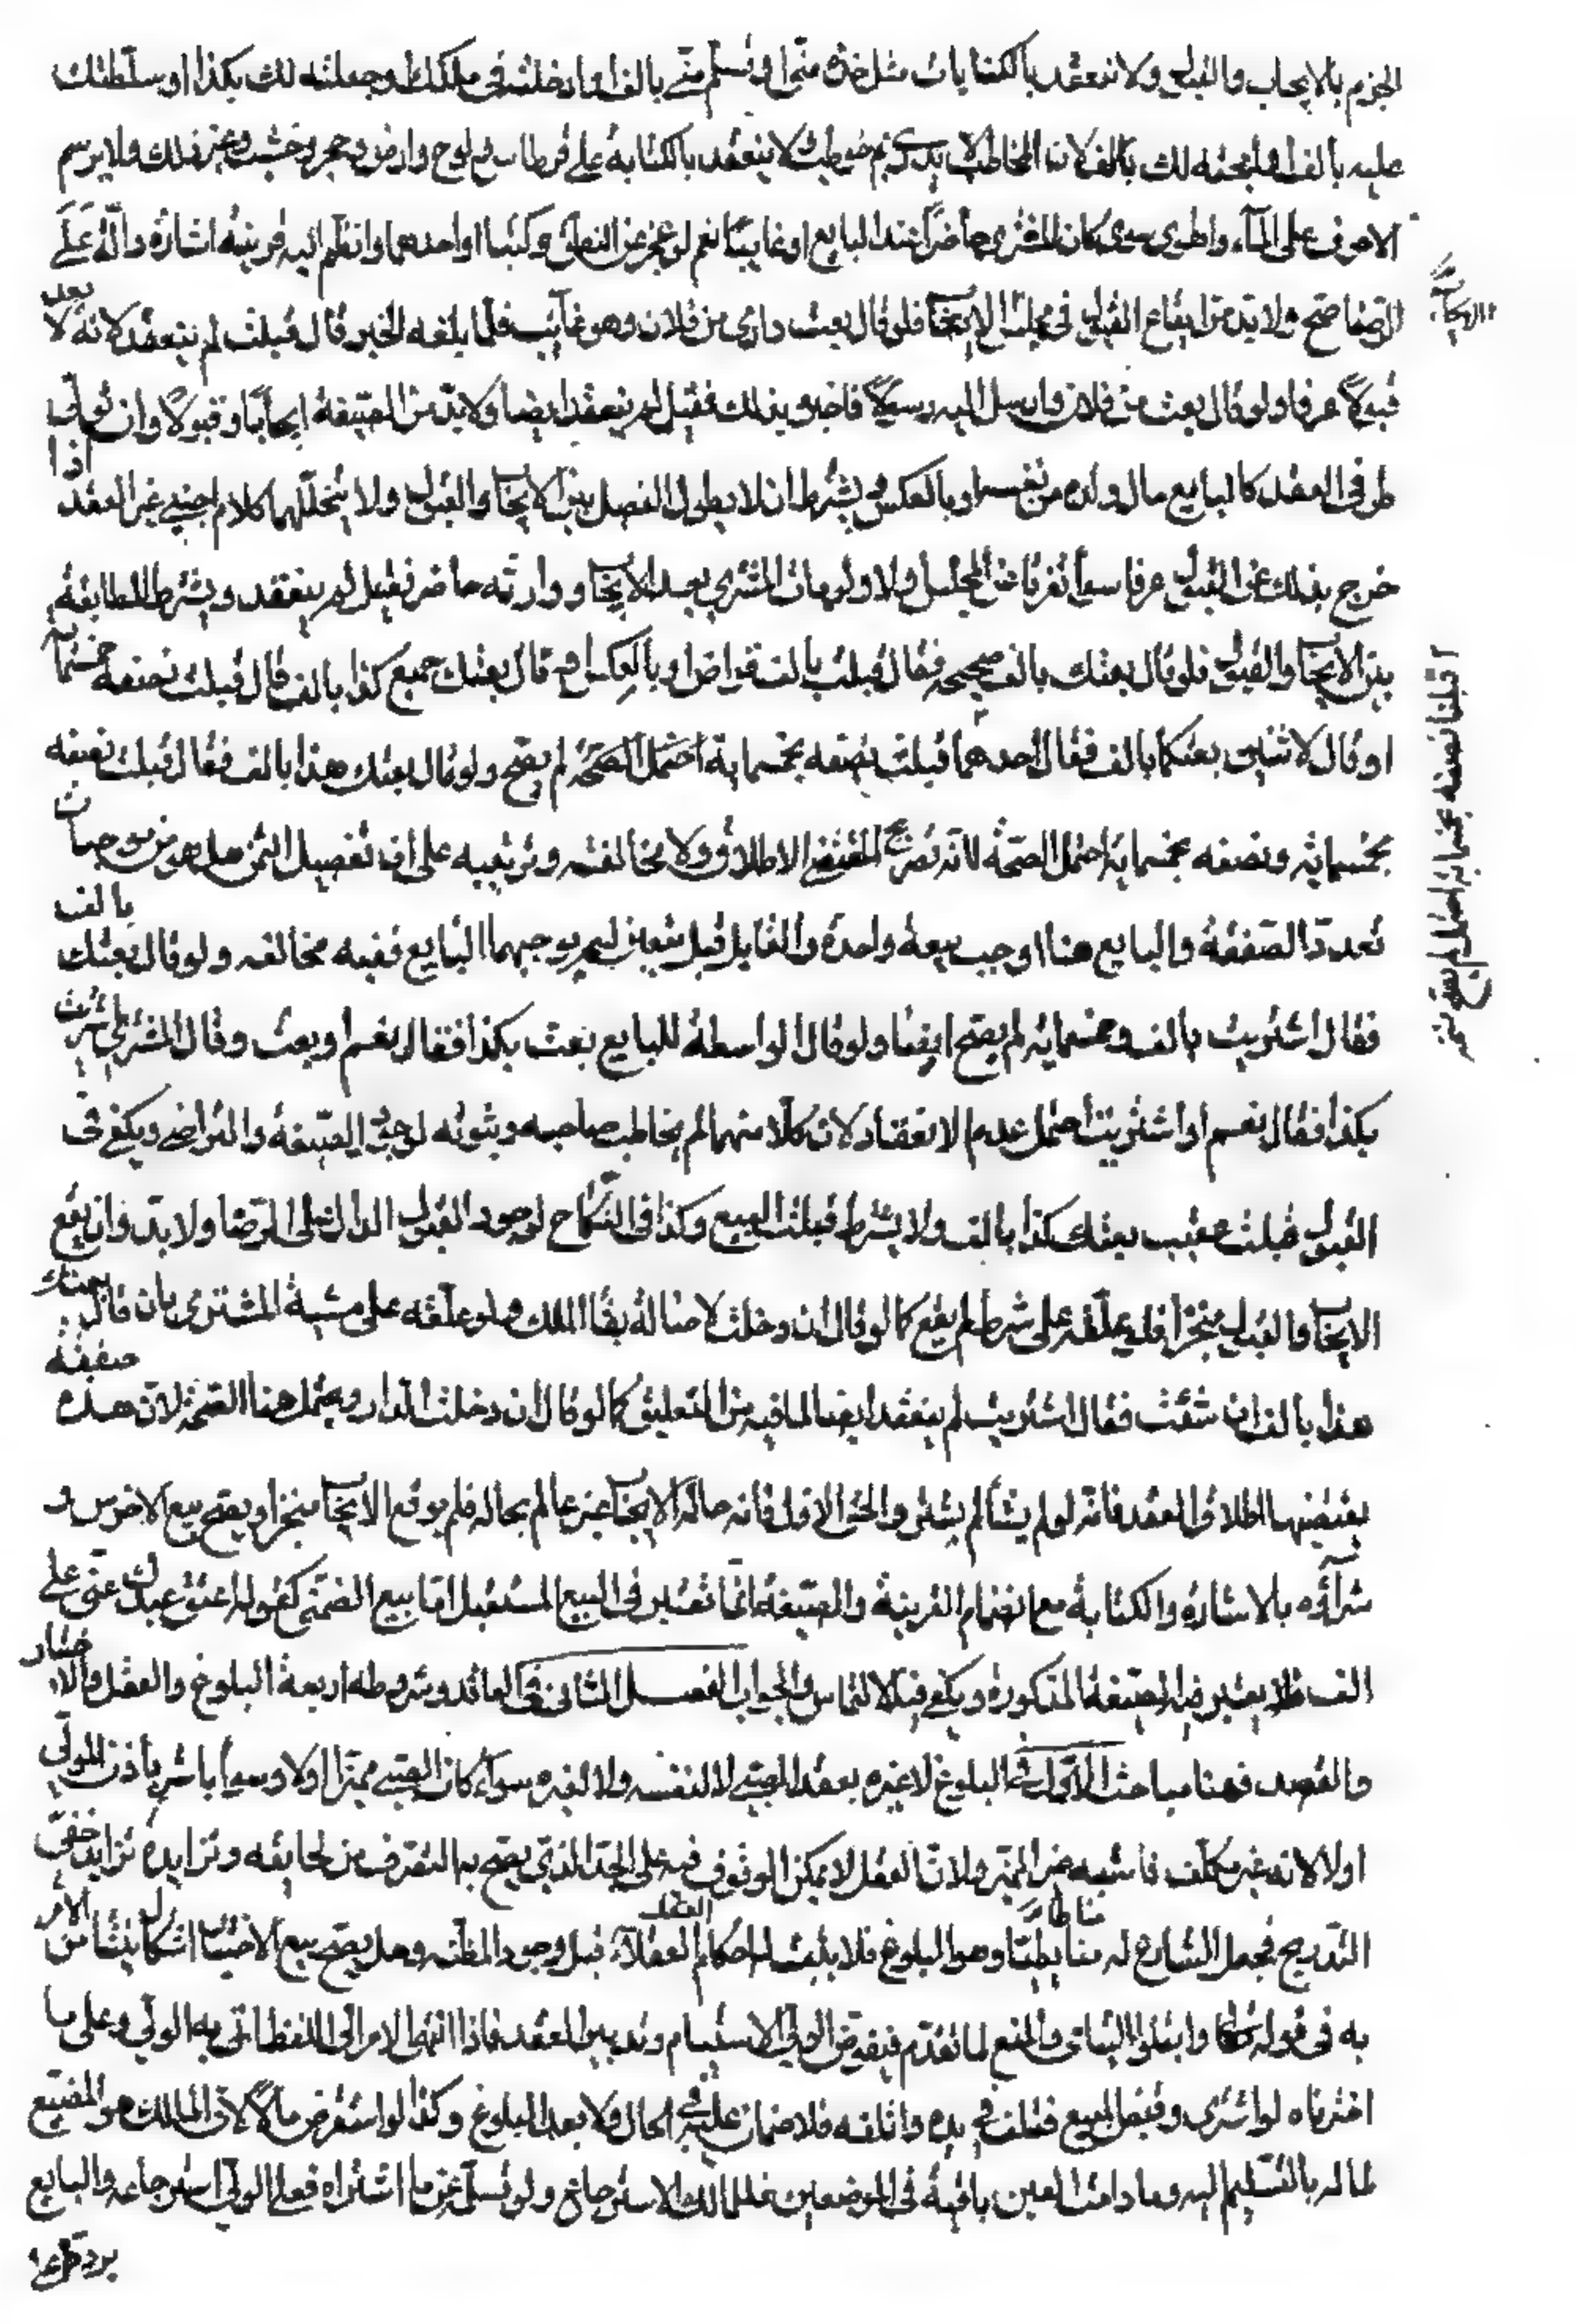 الجزم بالايجاب والقبول ولا تنعقد بالكنايات مثل خذه مني او تسلم مني بالف او ادخلته في ملكك او جعلته لك بكذا او سلطتك
عليه بالف او ابحته لك بالف لان المخاطب لا يدري بم خوطب ولا ينعقد بالكتابة على قرطاس ولوح وارض وحجر وخشب وغير ذلك ولا يرسم
الاحرف على الماء والهوى سوى كان المشتري حاضرا عند البايع او غايبا نعم لو عجز عن النطق وكتبا او احدهما وانظم اليه قرينة اشارة دالة على
الرضا صح ولا بد من ايقاع القبول في مجلس الايجاب فلو قال بعت داري من فلان وهو غايب فلما بلغه الخبر قال قبلت لم ينعقد لانه لا يعد
قبولا عرفا ولو قال بعت من فلان وارسل اليه رسولا فاخبره بذلك فقبل لم ينعقد ايضا ولا بد من الصيغة ايجابا وقبولا وان
طرفي العقد كالبايع مال ولده من نفسه او بالعكس ويشترط ان لا يطول الفصل بين الايجاب والقبول ولا يتخللهما كلام اجنبي عن العقد اذا
خرج بذلك عن القبول عرفا سوآ تفرقا عن المجلس او لا ولو مات المشتري بعد الايجاب ووارثه حاضر فقبل لم ينعقد ويشترط المطابقة
بين الايجاب والقبول فلو قال بعتك بالف صحيحة فقال قبلت بالف قراضا وبالعكس او قال بعتك جميع كذا بالف قال قبلت نصفه بخمسماية
او قال لاثنين بعتكما بالف فقال احدهما قبلت نصفه بخمسماية احتمل الصحة لم يصح ولو قال بعتك هذا بالف فقال قبلت نصفه
بخمسماية ونصفه بخمسماية احتمل الصحة لانه تصريح بمقتضى الاطلاق ولا مخالفة وترتيبه على ان تفصيل الثمن هل هو من موجبات
تعدد الصفقة والبايع هنا اوجب بيعة واحدة والقابل قبل بيعتين لم يوجبهما البايع ففيه مخالفة ولو قال بعتك بالف
فقال اشتريت بالف وخمسماية لم يصح ايضا ولو قال الواسطة للبايع بعت بكذا فقال نعم او بعت وقال للمشتري اشتريت
بكذا فقال نعم او اشتريت احتمل عدم الانعقاد لان كلا منهما لم يخاطب صاحبه وثبوته لوجود الصيغة والتراضي ويكفي في
القبول قبلت عقيب بعتك كذا بالف ولا يشترط قبلت البيع وكذا في النكاح لوجود القبول الدال على الرضا ولا بد وان يقع
الايجاب والقبول منجزا فلو علقه على شرط لم يقع كما لو قال ان دخلت لاصالة بقآ الملك ولو علقه على مشية المشتري بان قال بعتك
هذا بالف ان شئت فقال اشتريت لم ينعقد ايضا لما فيه من التعليق كما لو قال ان دخلت الدار ويحتمل هنا الصحة لان هذه صفقة
يقتضيها اطلاق العقد فانه لو لم يشا لم يشتر والحق الاول فانه حالة الايجاب غير عالم بحاله فلم يوقع الايجاب منجزا ويصح بيع الاخرس و
شرآؤه بالاشارة والكتابة مع انضمام القرينة والصيغة انما تعتبر في البيع المستقبل اما بيع الضمني كقوله اعتق عبدك عني على
الف فلا يعتبر فيه الصيغة المذكورة ويكفي فيه الالتماس والجواب الفصل الثاني في العاقد وشروطه اربعة البلوغ والعقل والاختيار
والقصد فهنا مباحث الاول في البلوغ لا عبرة بعقد الصبي لا لنفسه ولا لغيره سوآء كان الصبي مميزا او لا وسوآ باشر باذن الولي
او لا لانه غير مكلف فاشبه غير المميز ولان العقل لا يمكن الوقوف فيه على الحد الذي يصح به التصرف من لخفايه وتزايده تزايد خفي
التدريج فجعل الشارع له ضابطا وهو البلوغ فلا يثبت له احكام العقلآء قبل وجود المظنة وهل يصح بيع الاختبار اشكال ينشا من الامر
به في قوله تعالى وابتلوا اليتامى والمنع لما تقدم فيفوض الولي الاستيام وتدبير العقد فاذا انتهى الامر الى اللفظ اتى به الولي وعلى ما
اخترناه لو اشترى وقبض المبيع فتلف في يده او اتلفه فلا ضمان عليه في الحال ولا بعد البلوغ وكذا لو استقرض مالا لان المالك هو المضيع
لماله بالتسليم اليه وما دامت العين باقية في الموضعين فللمالك الاسترجاع ولو تسلم ثمن ما اشتراه فعلى الولي استرجاعه والبايع
يرده على
الايجاب
قبلنا نصفه بخمسماية احتمل لم يصح